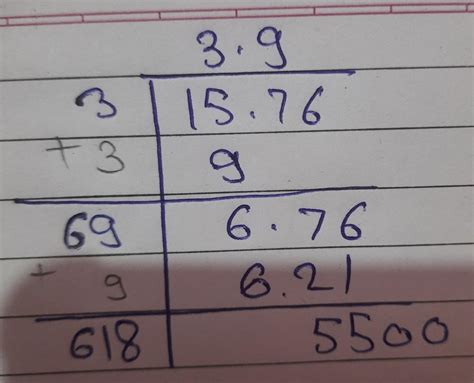 3.9
3 15.76
+3 9
69 6.76
+ 9 6.21
618 5500